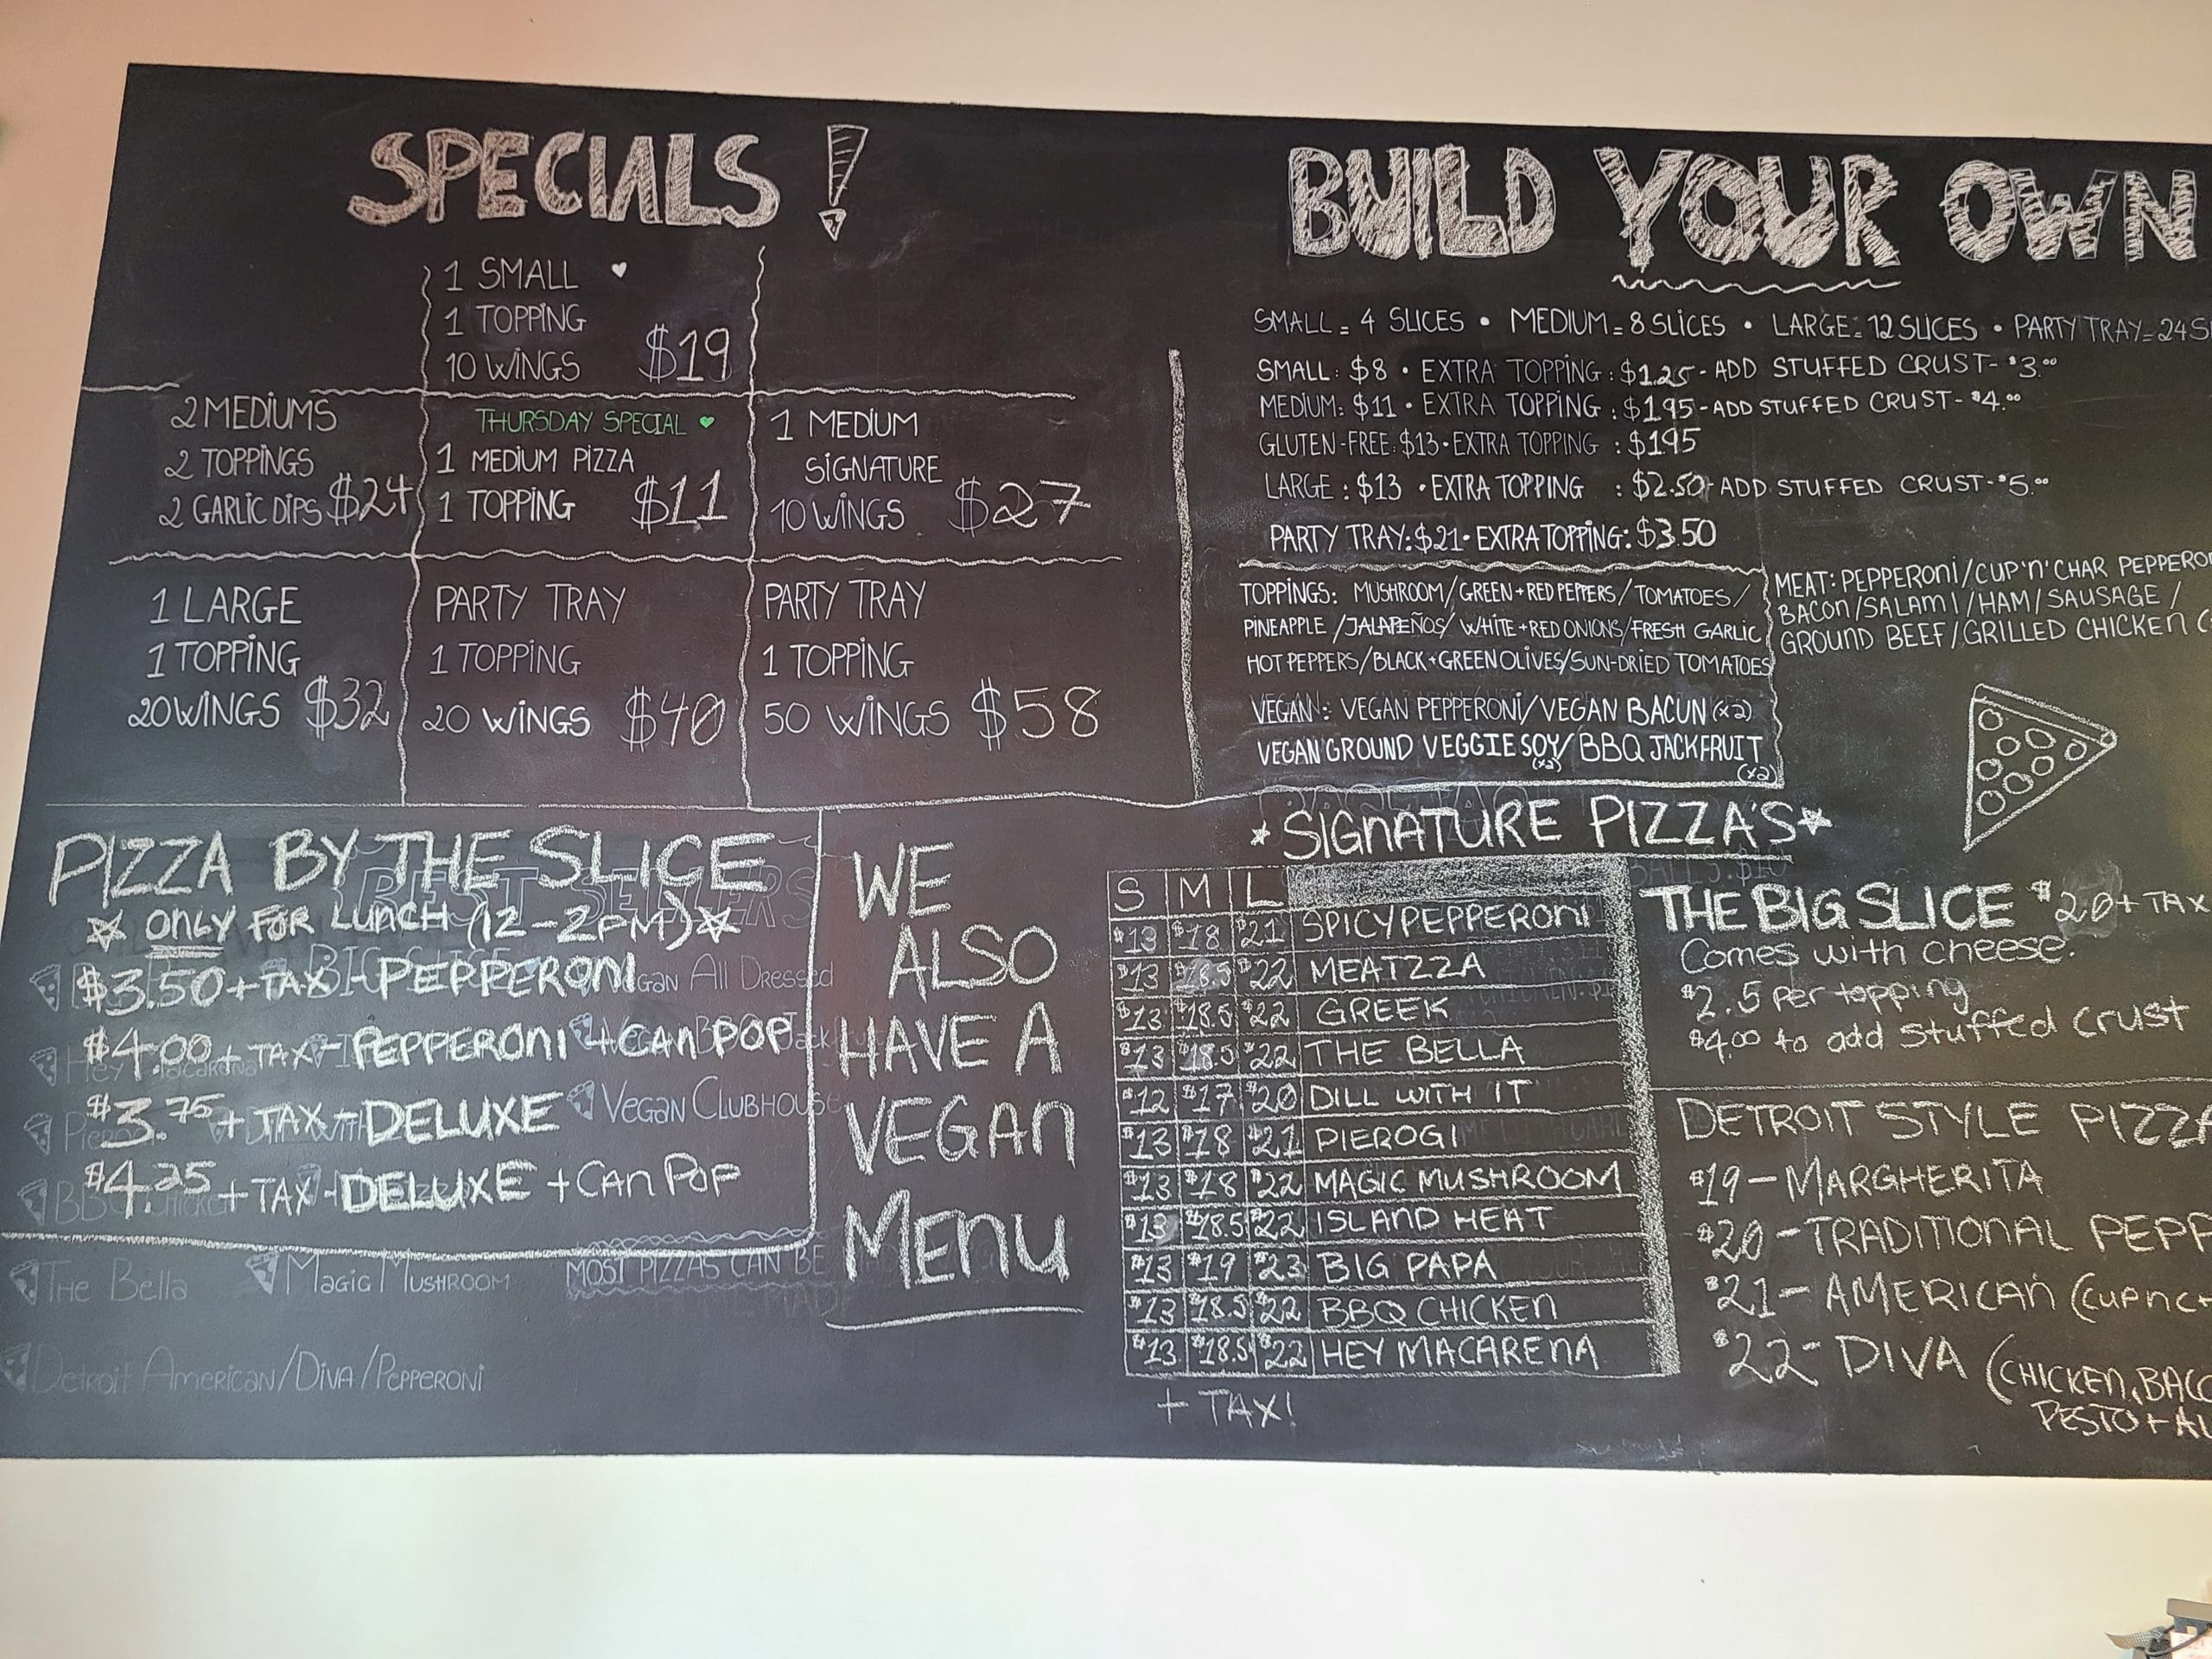 SPECIALS!
1 SMALL
1 TOPPING
10 WINGS $19
2 MEDIUMS
2 TOPPINGS
2 GARLIC DIPS $24
THURSDAY SPECIAL
1 MEDIUM PIZZA
1 TOPPING $11
1 MEDIUM
SIGNATURE
10 WINGS $27
1 LARGE
1 TOPPING
20 WINGS $32
PARTY TRAY
1 TOPPING
20 WINGS $40
PARTY TRAY
1 TOPPING
50 WINGS $58
BUILD YOUR OWN
SMALL = 4 SLICES • MEDIUM = 8 SLICES • LARGE = 12 SLICES • PARTY TRAY = 24
SMALL: $8 • EXTRA TOPPING: $1.25 - ADD STUFFED CRUST - $3.00
MEDIUM: $11 • EXTRA TOPPING: $1.95 - ADD STUFFED CRUST - $4.00
GLUTEN-FREE: $13 • EXTRA TOPPING : $1.95
LARGE: $13 • EXTRA TOPPING : $2.50 - ADD STUFFED CRUST - $5.00
PARTY TRAY: $21 • EXTRA TOPPING: $3.50
TOPPINGS: MUSHROOM/GREEN+RED PEPPERS/TOMATOES/
PINEAPPLE/JALAPEÑOS/WHITE+RED ONIONS/FRESH GARLIC
HOT PEPPERS/BLACK+GREEN OLIVES/SUN-DRIED TOMATOES
VEGAN: VEGAN PEPPERONI/VEGAN BACUN (x2)
VEGAN GROUND VEGGIE SOY (x2)/BBQ JACKFRUIT (x2)
MEAT: PEPPERONI/CUP'N'CHAR PEPPERO
BACON/SALAMI/HAM/SAUSAGE/
GROUND BEEF/GRILLED CHICKEN
PIZZA BY THE SLICE
ONLY FOR LUNCH (12-2PM)
$3.50 + TAX - PEPPERONI
$4.00 + TAX - PEPPERONI + CAN POP
$3.75 + TAX - DELUXE
$4.25 + TAX - DELUXE + CAN POP
BEST SELLERS
Vegan All Dressed
Vegan Clubhouse
The Bella
Magic Mushroom
MOST PIZZAS CAN BE
Detroit American/Diva/Pepperoni
WE
ALSO
HAVE A
VEGAN
MENU
SIGNATURE PIZZA'S
S M L
$13 $18 $21 SPICY PEPPERONI
$13 $18.5 $22 MEATZZA
$13 $18.5 $22 GREEK
$13 $18.5 $22 THE BELLA
$12 $17 $20 DILL WITH IT
$13 $18 $21 PIEROGI
$13 $18 $22 MAGIC MUSHROOM
$13 $18.5 $22 ISLAND HEAT
$13 $19 $23 BIG PAPA
$13 $18.5 $22 BBQ CHICKEN
$13 $18.5 $22 HEY MACARENA
+ TAX!
THE BIG SLICE $20 + TAX
Comes with cheese.
$2.5 per topping
$4.00 to add stuffed crust
DETROIT STYLE PIZZA
$19 - MARGHERITA
$20 - TRADITIONAL PEPP
$21 - AMERICAN (CUP N C
$22 - DIVA (CHICKEN, BACO
PESTO + AL